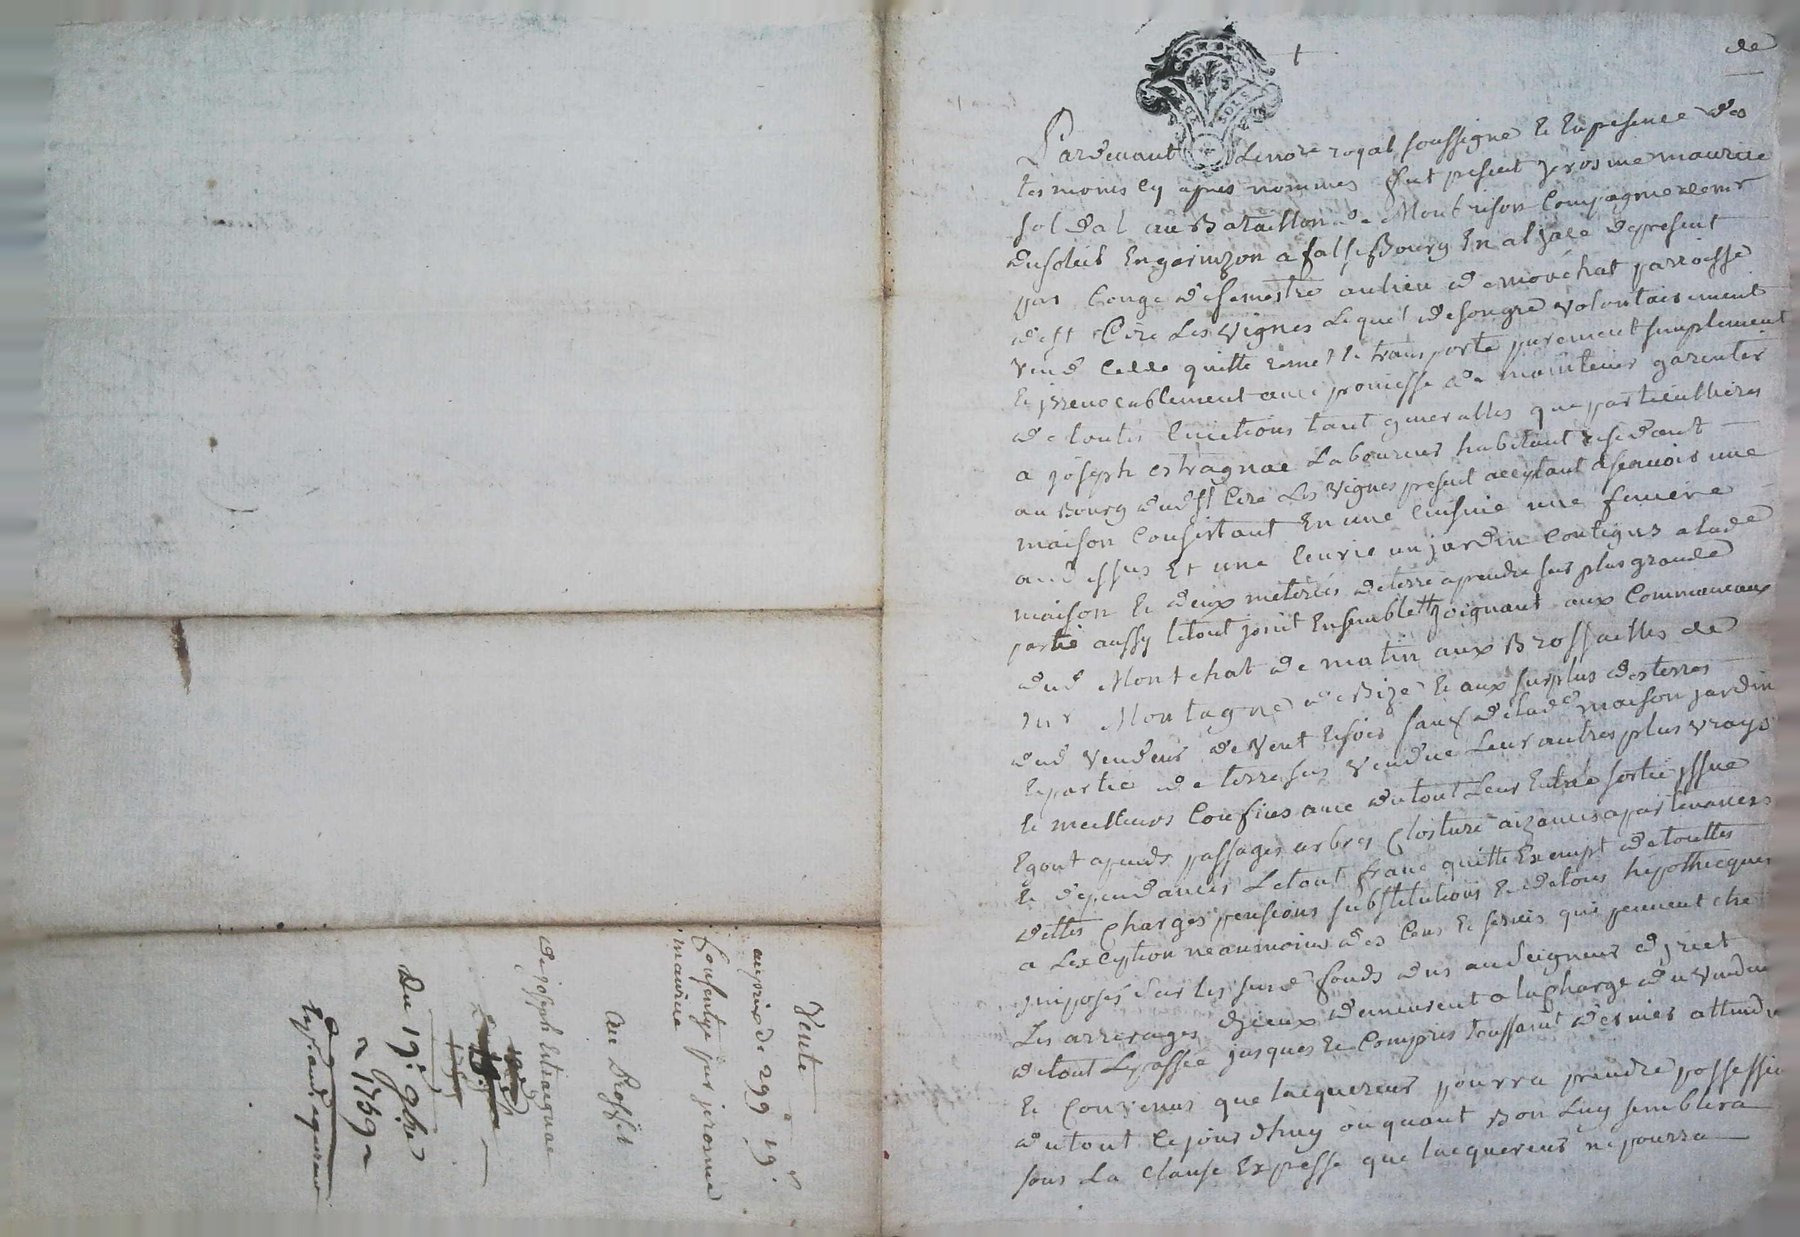 de
Pardevant Le no.re royal soussigné Et En presence des
tesmoins cy apres nommes fut present Jerosme maurice
soldat au Bataillon de Montrison Compagnie de mr
dusoleil En garnizon a falseBourg En alzace de present
par Congé de semestre au lieu de monchat parroisse
de st Cire Les Vignes Lequel de son gre volontairement
vend Cedde quitte remet Et transporte purement simplement
Et jrrevocablement avec promesse de maintenir garentir
de toutes Evictions tant generalles que particullieres
a joseph estragnac Laboureur habitant residant
au Bourg dud st Cire Les Vignes present acceptant a scavoir une
maison Consistant En une Cuisine une feniere
au dessus Et une Ecurie un jardin Contigus a lade
maison Et deux meterées de terre a prendre sur plus grande
partie aussy le tout joint Ensemble joignant aux Communeaux
dud Montchat de matin aux Brossailles de
mr Montagne de Bize Et aux surplus des terres
dud vendeur de Vent Et soir sauf de lade maison jardin
Et partie de terre sus vendue Leur autres plus vrays
Et meilleurs Confins avec du tout Leur Entrée sortie jssue
Egout apends passages arbres Closture aizances apartenances
Et dependances Le tout franc quitte Exempt de touttes
dettes Charges pensions substitutions Et de tous hipothecques
a Lexception neanmoins des Cens Et servis qui peuvent etre
jmposés sur les susd fonds dus au seigneur djcieux
Les arrerages djceux demeurent a la Charge du vendeur
de tout Le passé jusques Et Compris toussaint dernier attendu
Et Convenus que lacquereur pourra prendre possession
du tout Ce jourdhuy ou quant Bon Luy semblera
sous La Clause Expresse que lacquereur ne pourra
Vente
au prix de 299 19
Consentye par jerosme
maurice
Au Proffit
de joseph Estragnac
Du 19e 9bre
1769